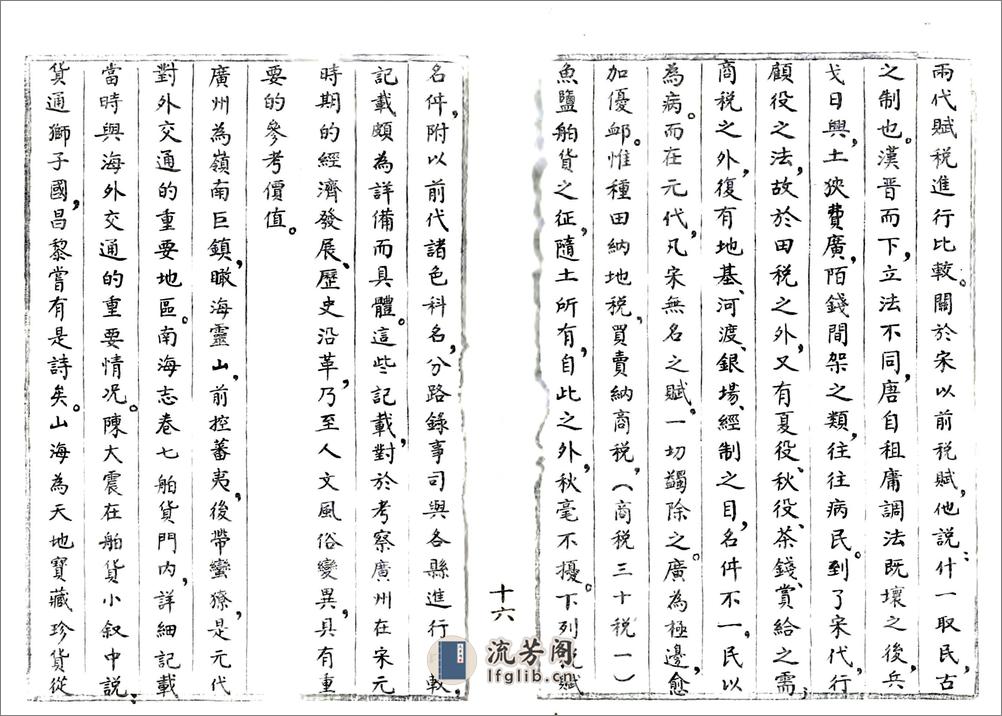 兩代賦稅進行比較。關於宋以前稅賦，他說：什一取民，古
之制也。漢晉而下，立法不同，唐自租庸調法既壞之後，兵
戈日興，土狹費廣，陌錢間架之類，往往病民。到了宋代，行
顧役之法，故於田稅之外，又有夏役、秋役、茶錢、賞給之需；
商稅之外，復有地基、河渡、銀場、經制之目，名件不一，民以
為病。而在元代，凡宋無名之賦。一切蠲除之。廣為極邊，愈
加優卹。惟種田納地稅，買賣納商稅，（商稅三十稅一）
魚鹽舶貨之征，隨土所有，自此之外，秋毫不擾。下列稅賦
十六
名件，附以前代諸色科名，分路錄事司與各縣進行較，
記載頗為詳備而具體。這些記載，對於考察廣州在宋元
時期的經濟發展、歷史沿革，乃至人文風俗變異，具有重
要的參考價值。
廣州為嶺南巨鎮，瞰海靈山，前控蕃夷，後帶蠻獠，是元代
對外交通的重要地區。南海志卷七舶貨門內，詳細記載
當時與海外交通的重要情況。陳大震在舶貨小叙中說：
貨通獅子國，昌黎嘗有是詩矣。山海為天地寶藏珍貨從
流芳阁
lfglib.cn